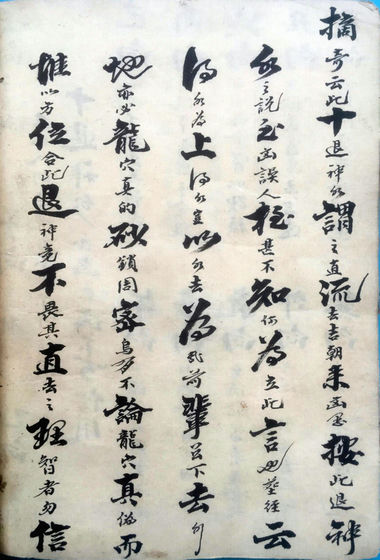 摘奇云此十退神水謂之直流去吉朝来凶愚按此退神
水之說至凶誤人極甚不知何為立此言也葬經云
得水為上得水豈以水去為前輩下去
地亦必龍穴真的砂鎖周密烏可不論龍穴真偽而
惟以方位合此退神竟不畏其直去之理智者勿信